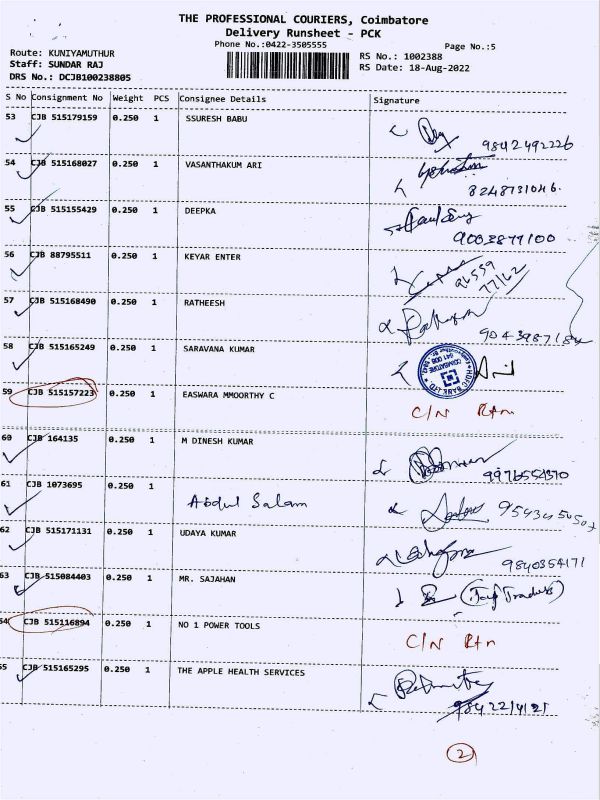 THE PROFESSIONAL COURIERS, Coimbatore
Delivery Runsheet - PCK
Phone No.:0422-3505555
Page No.:5
Route: KUNIYAMUTHUR
RS No.: 1002388
Staff: SUNDAR RAJ
RS Date: 18-Aug-2022
DRS No.: DCJB100238805
S No Consignment No Weight PCS Consignee Details Signature
53 CJB 515179159 0.250 1 SSURESH BABU
9842492226
54 CJB 515168027 0.250 1 VASANTHAKUM ARI
8248731046.
55 CJB 515155429 0.250 1 DEEPKA
9003877100
56 CJB 88795511 0.250 1 KEYAR ENTER
96559
77162
57 CJB 515168490 0.250 1 RATHEESH
9043987184
58 CJB 515165249 0.250 1 SARAVANA KUMAR
59 CJB 515157223 0.250 1 EASWARA MMOORTHY C
C/N Rtn
60 CJB 164135 0.250 1 M DINESH KUMAR
9976554370
61 CJB 1073695 0.250 1 Abdul Salam
62 CJB 515171131 0.250 1 UDAYA KUMAR
9840354171
63 CJB 515084403 0.250 1 MR. SAJAHAN
(Taj Traders)
64 CJB 515116894 0.250 1 NO 1 POWER TOOLS
C/N Rtn
65 CJB 515165295 0.250 1 THE APPLE HEALTH SERVICES
9842214121
2